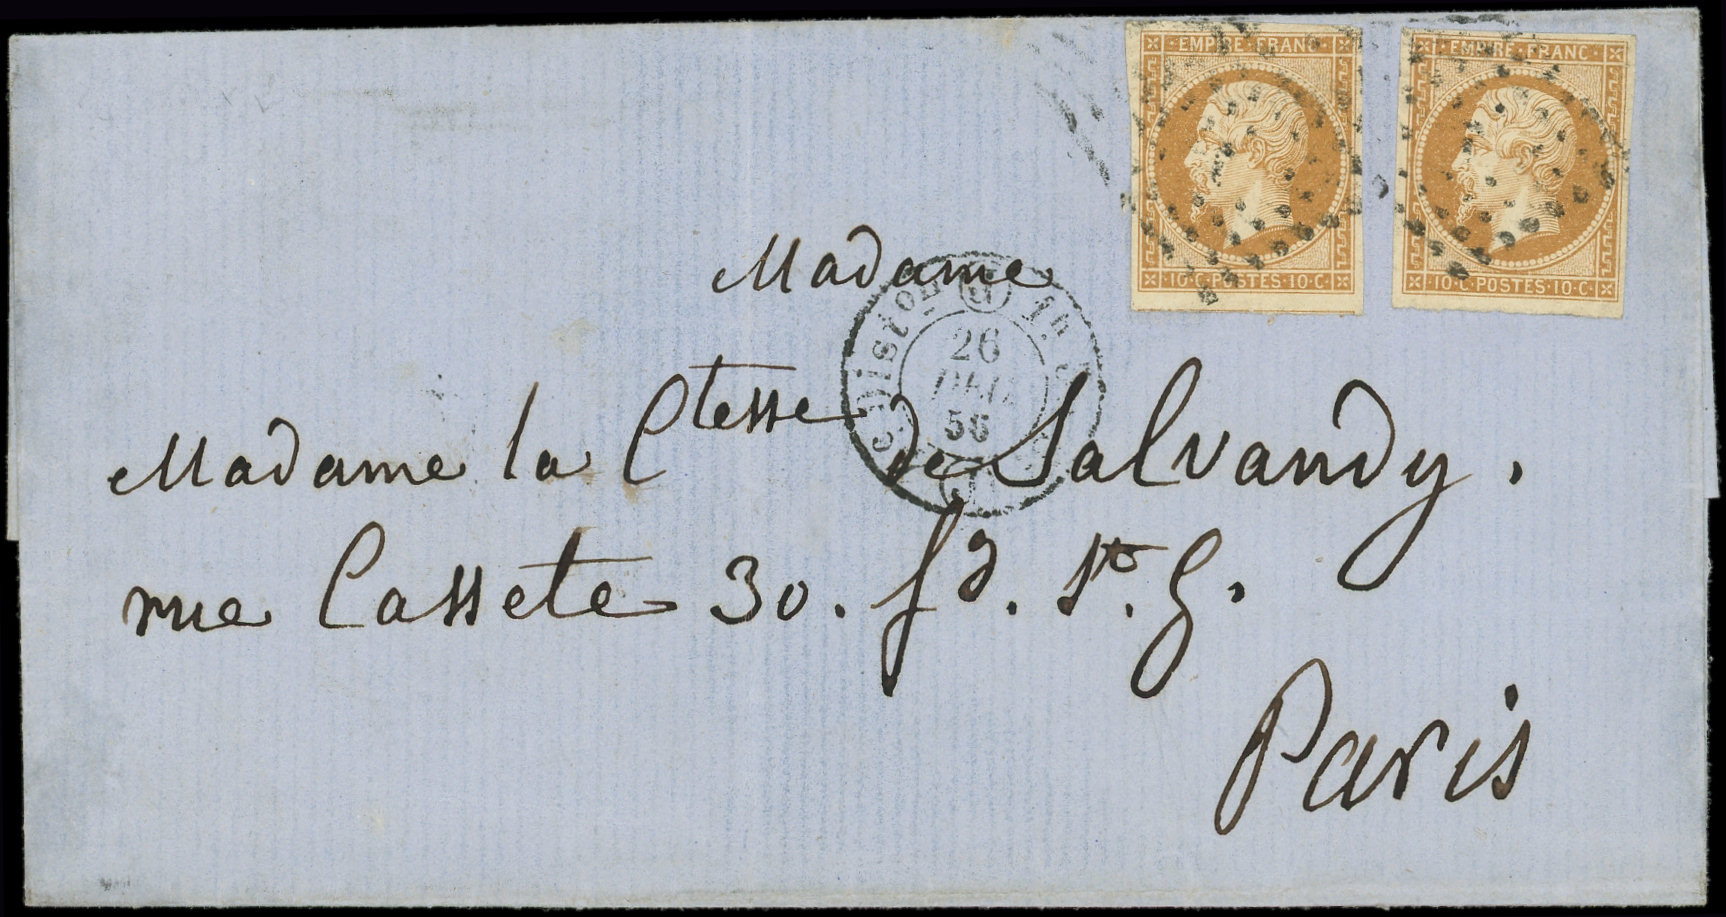 EMPIRE·FRANC·
EMPIRE·FRANC·
·10·C·POSTES·10·C·
·10·C·POSTES·10·C·
Madame
26
56
Madame la Ctesse de Salvandy.
rue Cassete 30. fg. St. G.
Paris